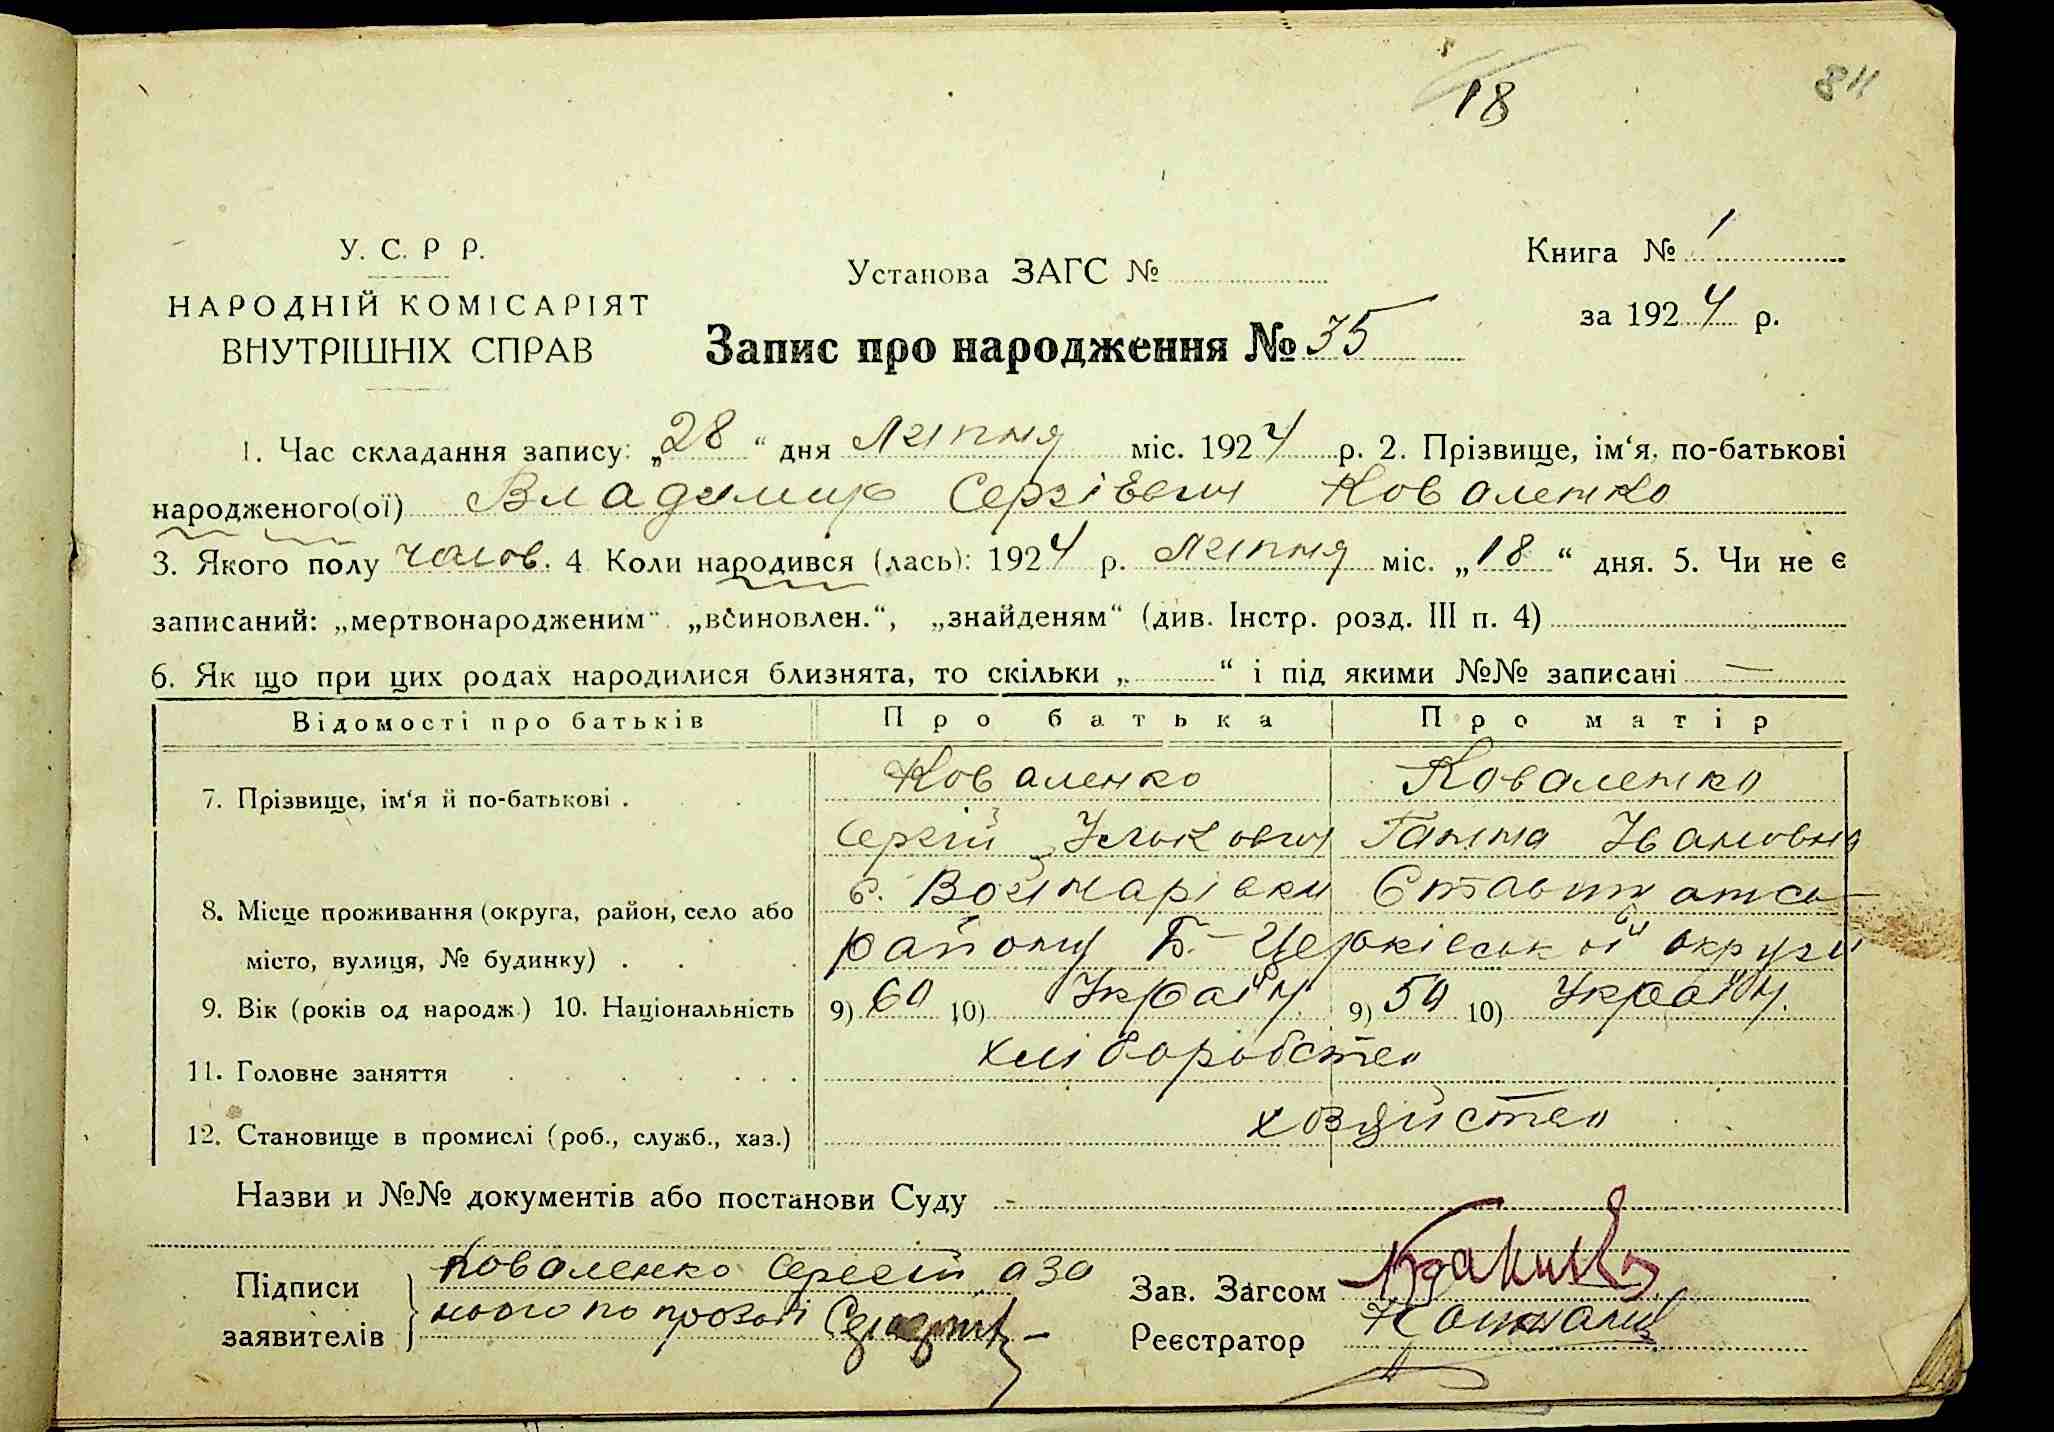 18
811
У. С. Р Р.
НАРОДНІЙ КОМІСАРІЯТ
ВНУТРІШНІХ СПРАВ
Установа ЗАГС №
Книга № 1
за 1924 р.
Запис про народження № 35
1. Час складання запису: „28“ дня Липня міс. 1924 р. 2. Прізвище, ім‘я, по-батькові
народженого(ої) Владимир Сергієвич Коваленко
3. Якого полу чолов. 4 Коли народився (лась): 1924 р. Липня міс. „18“ дня. 5. Чи не є
записаний: „мертвонародженим“ „всиновлен.“, „знайденям“ (див. Інстр. розд. III п. 4)
6. Як що при цих родах народилися близнята, то скільки „ “ і під якими №№ записані —
Відомості про батьків Про батька Про матір
7. Прізвище, ім‘я й по-батькові . Коваленко Коваленко
Сергій Ількович Ганна Ивановна
8. Місце проживання (округа, район, село або с.
місто, вулиця, № будинку) . району Б.-Церківської округи
9. Вік (років од народж.) 10. Національність 9) 60 10) Україн. 9) 50 10) Україн.
11. Головне заняття хліборобство
12. Становище в промислі (роб., служб., хаз.) хозяйство
Назви и №№ документів або постанови Суду -
Підписи Коваленко Сергій а за
заявителів
Зав. Загсом
Реєстратор